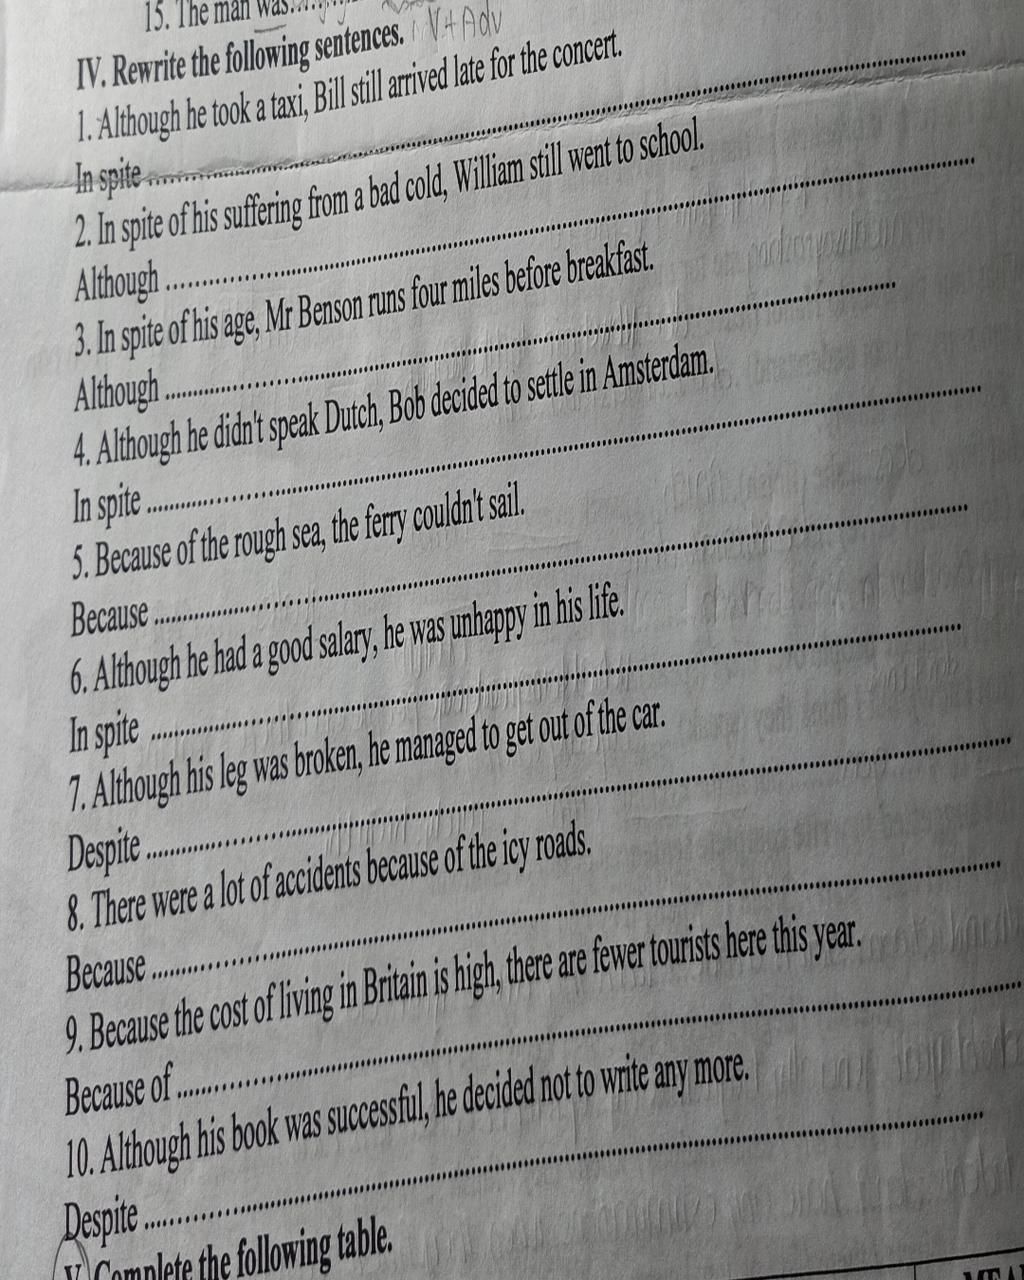 15. The man was......
IV. Rewrite the following sentences. V+Adv
1. Although he took a taxi, Bill still arrived late for the concert.
In spite ..........
2. In spite of his suffering from a bad cold, William still went to school.
Although ..........
3. In spite of his age, Mr Benson runs four miles before breakfast.
Although ..........
4. Although he didn't speak Dutch, Bob decided to settle in Amsterdam.
In spite ..........
5. Because of the rough sea, the ferry couldn't sail.
Because ..........
6. Although he had a good salary, he was unhappy in his life.
In spite ..........
7. Although his leg was broken, he managed to get out of the car.
Despite ..........
8. There were a lot of accidents because of the icy roads.
Because ..........
9. Because the cost of living in Britain is high, there are fewer tourists here this year.
Because of ..........
10. Although his book was successful, he decided not to write any more.
Despite ..........
V. Complete the following table.